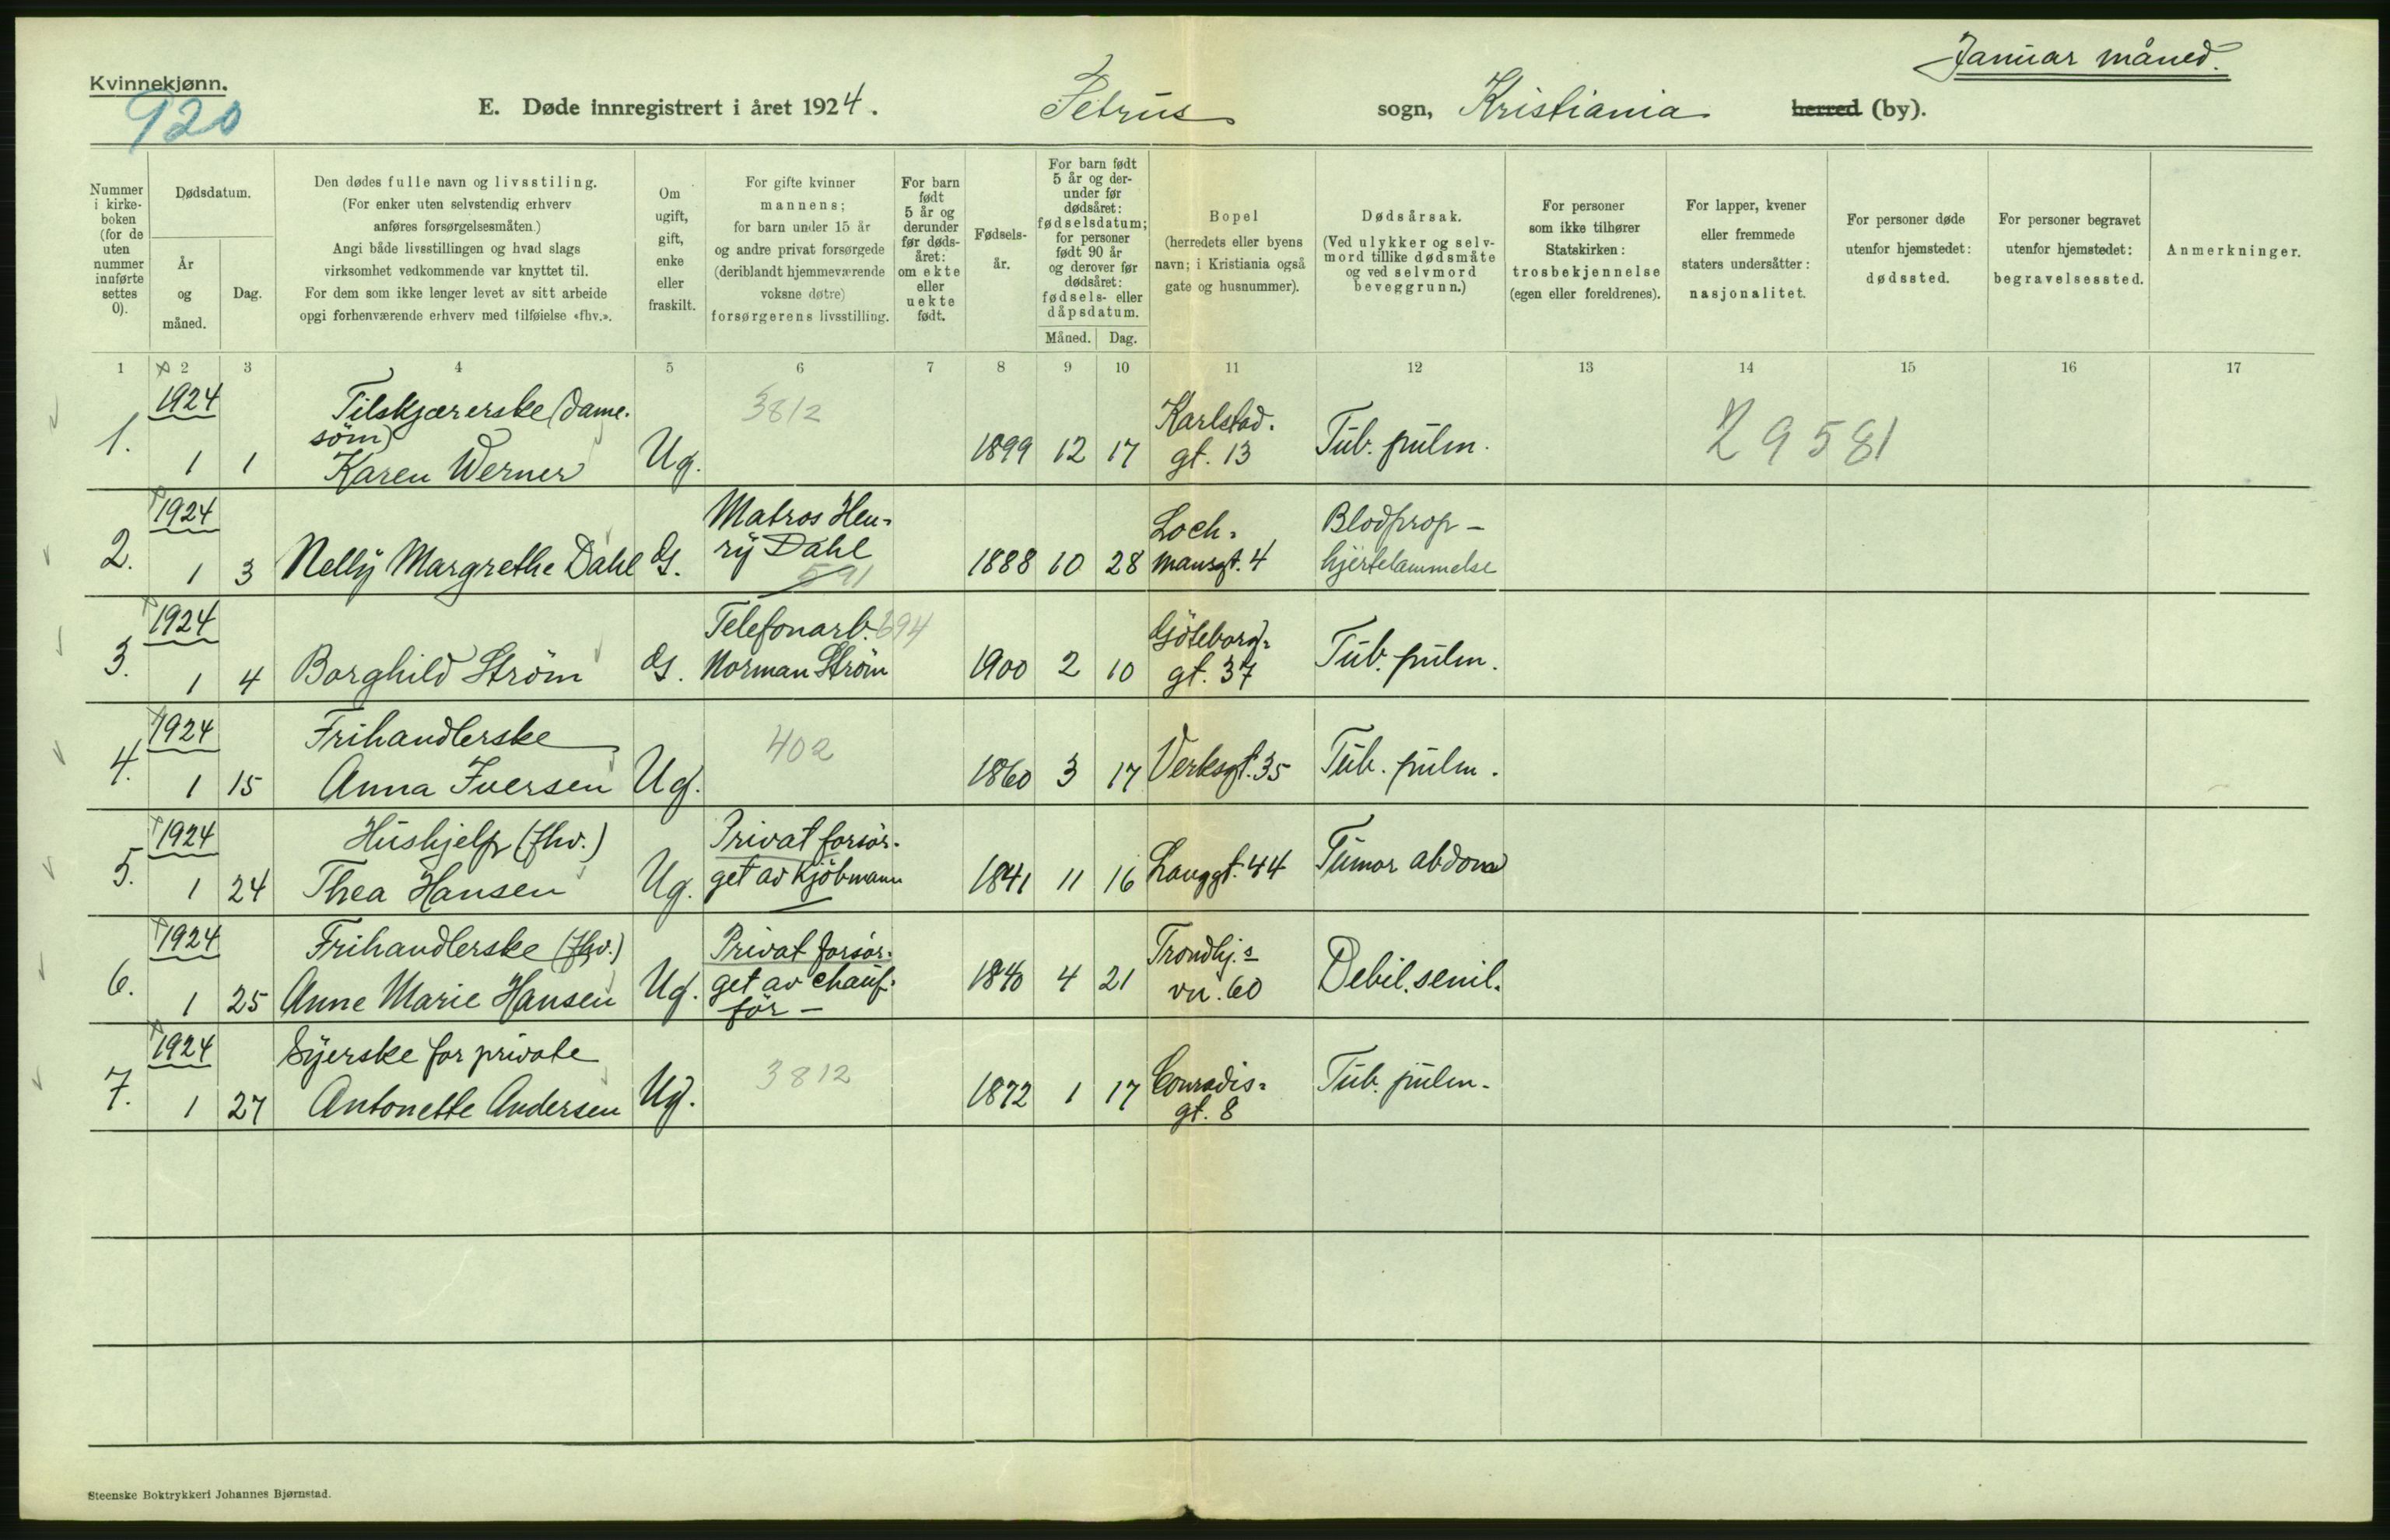 Januar måned.
Kvinnekjønn.
920
E. Døde innregistrert i året 1924. Petrus sogn, Kristiania herred (by).
Nummer i kirke-boken (for de uten nummer innførte settes 0).
Dødsdatum.
År og måned.
Dag.
Den dødes fulle navn og livsstiling.
(For enker uten selvstendig erhverv
anføres forsørgelsesmåten.)
Angi både livsstillingen og hvad slags
virksomhet vedkommende var knyttet til.
For dem som ikke lenger levet av sitt arbeide
opgi forhenværende erhverv med tilføielse «fhv.».
Om ugift, gift, enke eller fraskilt.
For gifte kvinner
mannens;
for barn under 15 år
og andre privat forsørgede
(deriblandt hjemmeværende
voksne døtre)
forsørgerens livsstilling.
For barn født 5 år og derunder før døds-året: om ekte eller uekte født.
Fødsels-år.
For barn født 5 år og der-under før dødsåret: fødselsdatum; for personer født 90 år og derover før dødsåret: fødsels- eller dåpsdatum.
Måned. Dag.
Bopel
(herredets eller byens
navn; i Kristiania også
gate og husnummer).
Dødsårsak.
(Ved ulykker og selv-
mord tillike dødsmåte
og ved selvmord
beveggrunn.)
For personer
som ikke tilhører
Statskirken:
trosbekjennelse
(egen eller foreldrenes).
For lapper, kvener
eller fremmede
staters undersåtter:
nasjonalitet.
For personer døde
utenfor hjemstedet:
dødssted.
For personer begravet
utenfor hjemstedet:
begravelsessted.
Anmerkninger.
1 2 3 4 5 6 7 8 9 10 11 12 13 14 15 16 17
1924 Tilskjærerske (dame- 3812 Karlstad-
1. 1 1 søm) Karen Werner Ug. 1899 12 17 gt. 13 Tub. pulm. 29581
1924 Matros Hen- Loch- Blodprop -
2. 1 3 Nelly Margrethe Dahl G. ry Dahl 591 1888 10 28 mansgt. 4 hjertelammelse
1924 Telefonarb. 694 Göteborg-
3. 1 4 Borghild Strøm G. Norman Strøm 1900 2 10 gt. 37 Tub. pulm.
1924 Frihandlerske 402
4. 1 15 Anna Iversen Ug. 1860 3 17 Verksgt. 35 Tub. pulm.
1924 Hushjelp (fhv.) Privat forsør-
5. 1 24 Thea Hansen Ug. get av Kjøbmann 1841 11 16 Langgt. 44 Tumor abdom
1924 Frihandlerske (fhv.) Privat forsør- Trondhj.s
6. 1 25 Anne Marie Hansen Ug. get av chauf- før - 1840 4 21 vn. 60 Debil. senil.
1924 Syerske for private 3812 Conradis-
7. 1 27 Antonette Andersen Ug. 1872 1 17 gt. 8 Tub. pulm.
Steenske Boktrykkeri Johannes Bjørnstad.